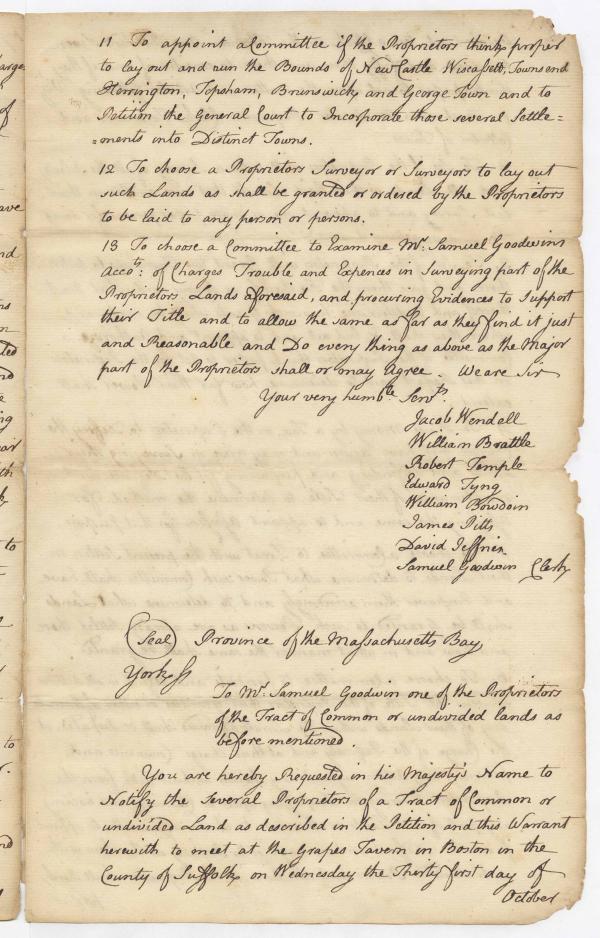 11 To appoint a Committee if the Proprietors think proper
to lay out and run the Bounds of New Castle Wiscassett, Townsend
Herrington, Topsham, Brunswick, and George Town and to
Petition the General Court to Incorporate those several Settle=
=ments into Distinct Towns.
12 To choose a Proprietors Surveyor or Surveyors to lay out
such Lands as shall be granted or ordered by the Proprietors
to be laid to any person or persons.
13 To choose a Committee to Examine Mr. Samuel Goodwins
Accots: of Charges Trouble and Expences in Surveying part of the
Proprietors Lands aforesaid, and procuring Evidences to Support
their Title and to allow the same as far as they find it just
and Reasonable and Do every thing as above as the Major
part of the Proprietors shall or may Agree. We are Sir
Your very humble Servts.
Jacob Wendell
William Brattle
Robert Temple
Edward Tyng
William Bowdoin
James Pitts
David Jeffries
Samuel Goodwin Clerk
Seal Province of the Massachusetts Bay,
York Ss
To Mr. Samuel Goodwin one of the Proprietors
of the Tract of Common or undivided lands as
before mentioned.
You are hereby Requested in his Majesty's Name to
Notify the several Proprietors of a Tract of Common or
undivided Land as described in the Petition and this Warrant
herewith to meet at the Grapes Tavern in Boston in the
County of Suffolk, on Wednesday the Thirty first day of
October